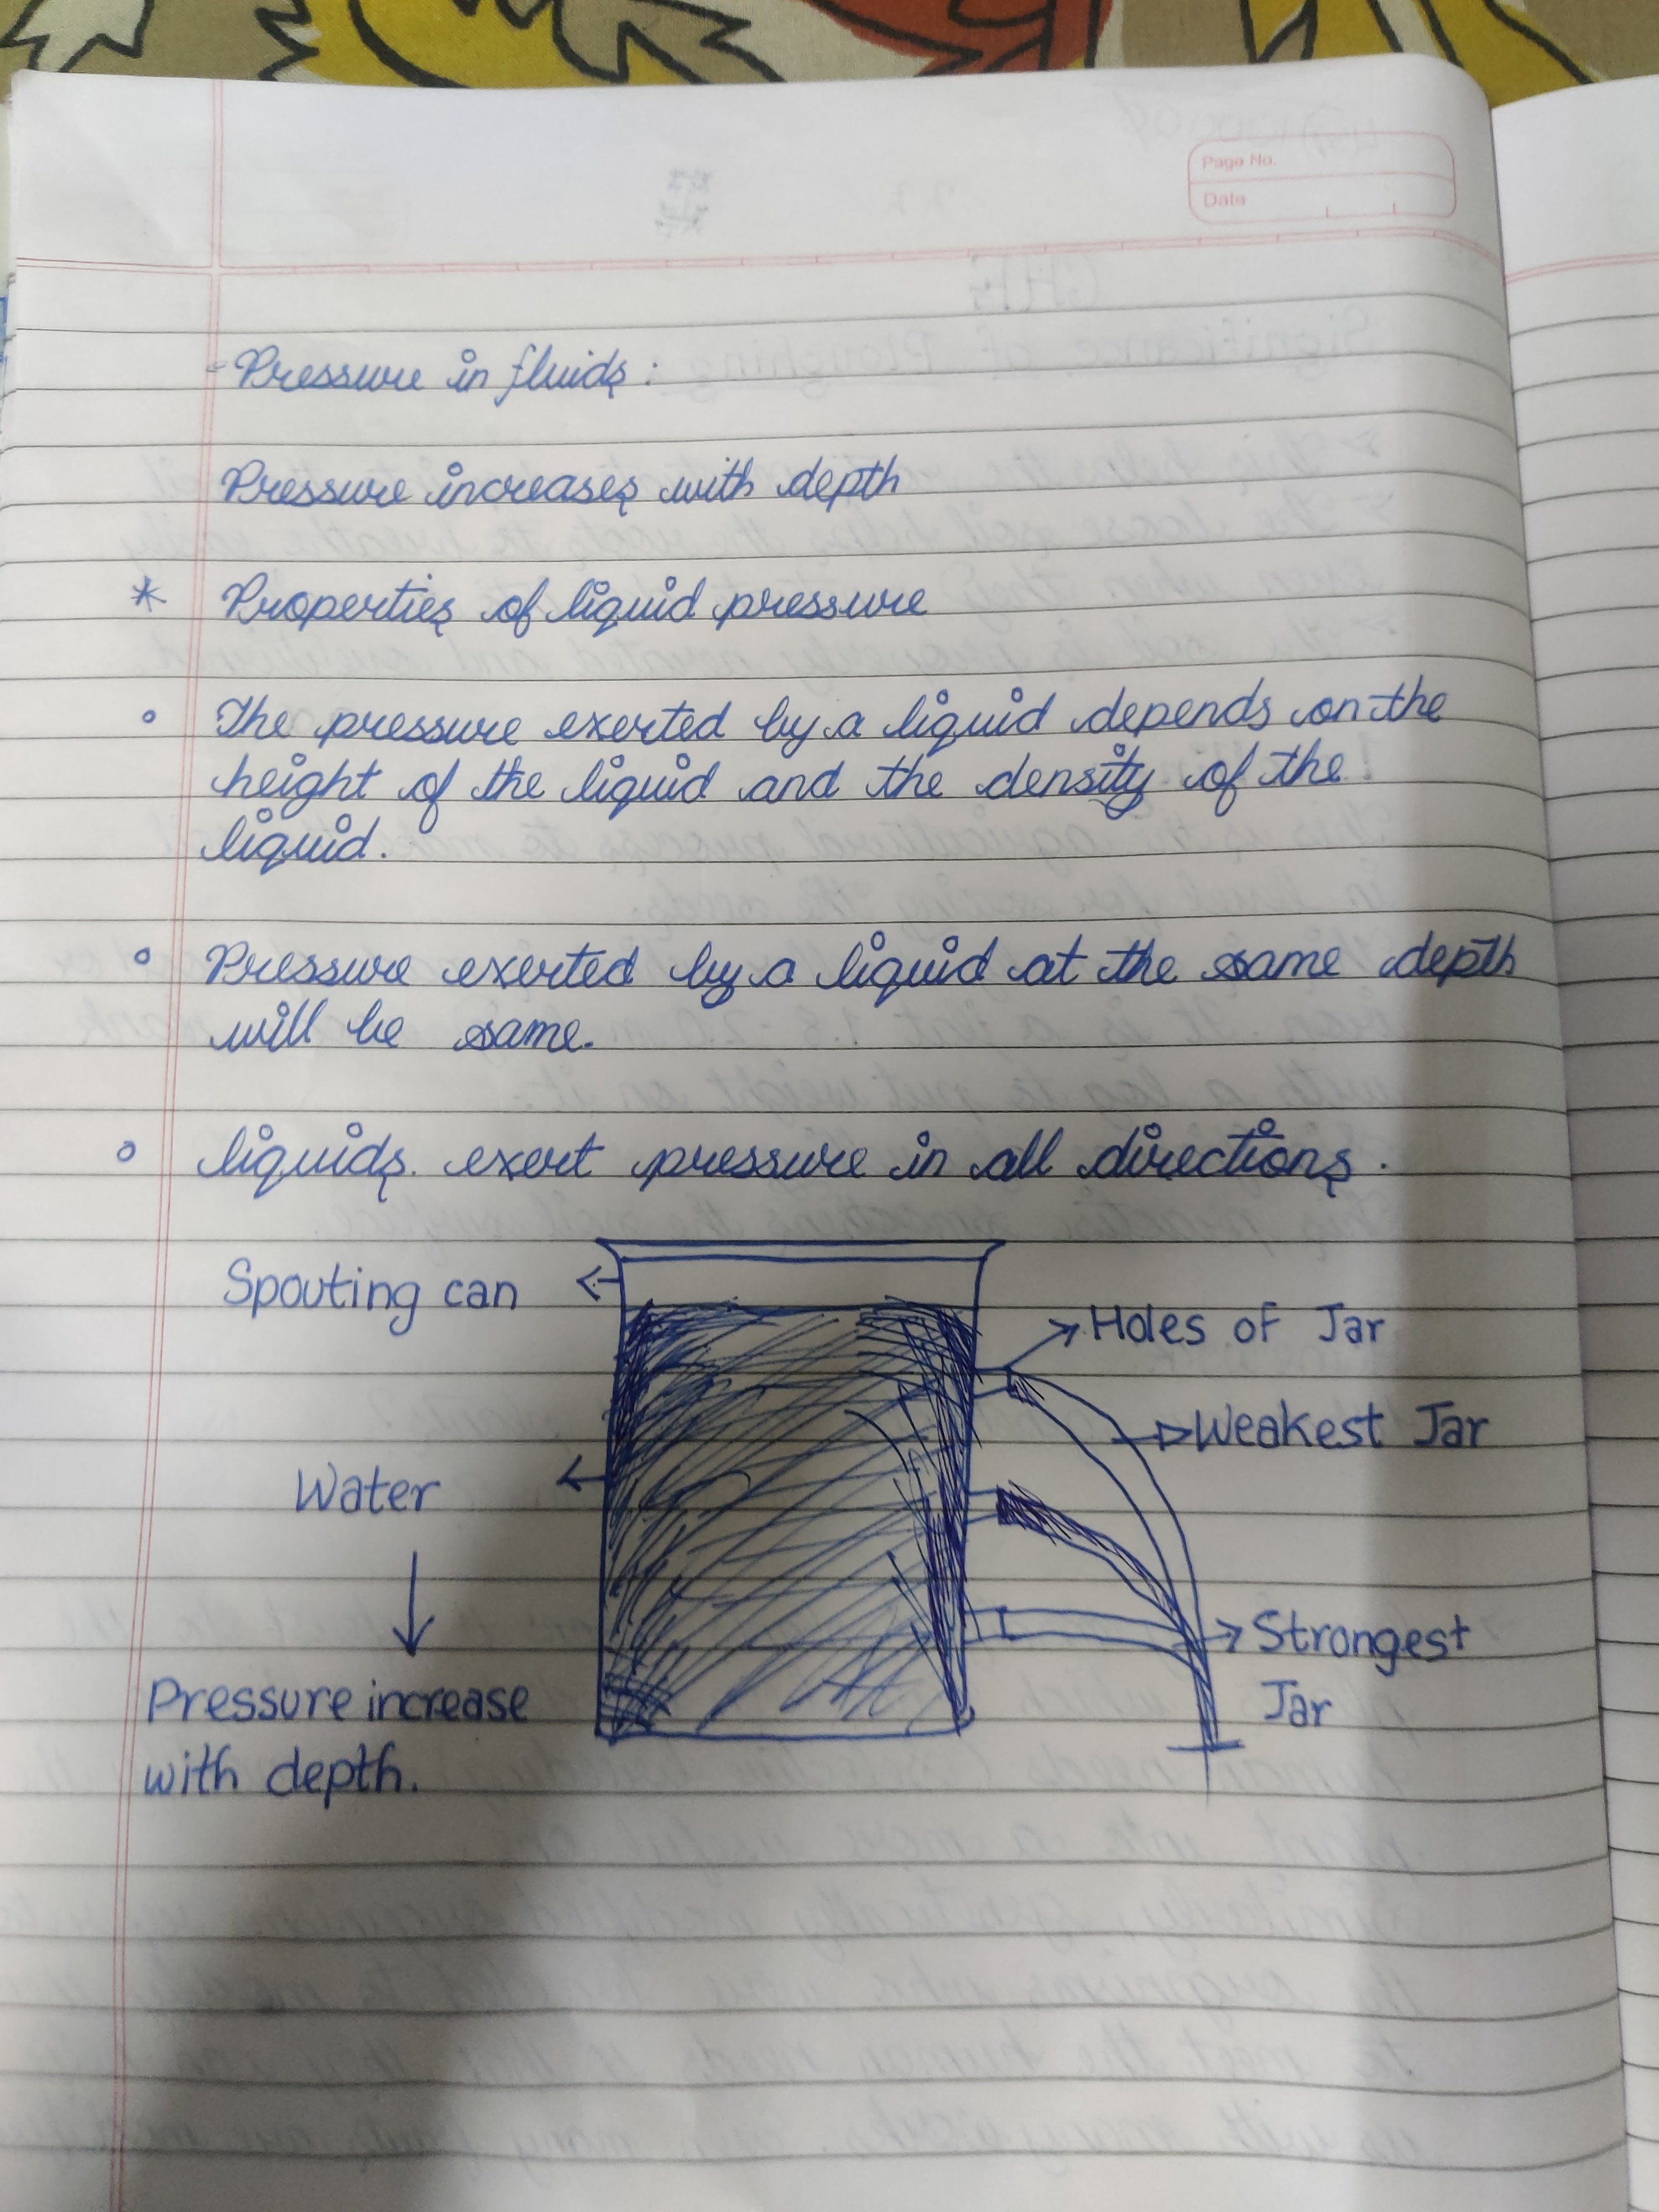 Page No.
Date
Pressure in fluids:
Pressure increases with depth
* Properties of liquid pressure
° The pressure exerted by a liquid depends on the
height of the liquid and the density of the
liquid.
° Pressure exerted by a liquid at the same depth
will be same.
° liquids exert pressure in all directions.
Spouting can
Holes of Jar
Weakest Jar
Water
Strongest
Jar
Pressure increase
with depth.